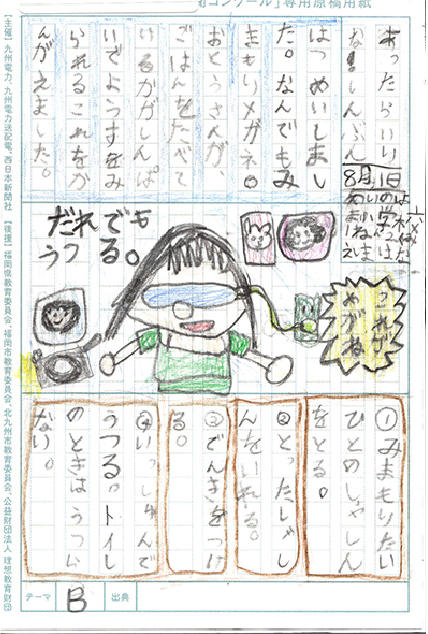 コンクール」専用原稿用紙
あったらいい
なましんぶん
8月1日
はつめいしまし
た。なんでもみ
まもりメガネ。
おとうさんが、
ごはんをたべて
いるかがしんぱ
いでようすをみ
られるこれをか
んがえました。
だれでも
うつる。
これが
めがね
①みまもりたい
ひとのしゃしん
をとる。
②とったしゃし
んをいれる。
③でんきをつけ
る。
④いっしゅんで
うつる。トイレ
のときはうつら
ない。
テーマ
B
出典
【主催】九州電力、九州電力送配電、西日本新聞社 【後援】福岡県教育委員会、福岡市教育委員会、北九州市教育委員会、公益財団法人 理想教育財団